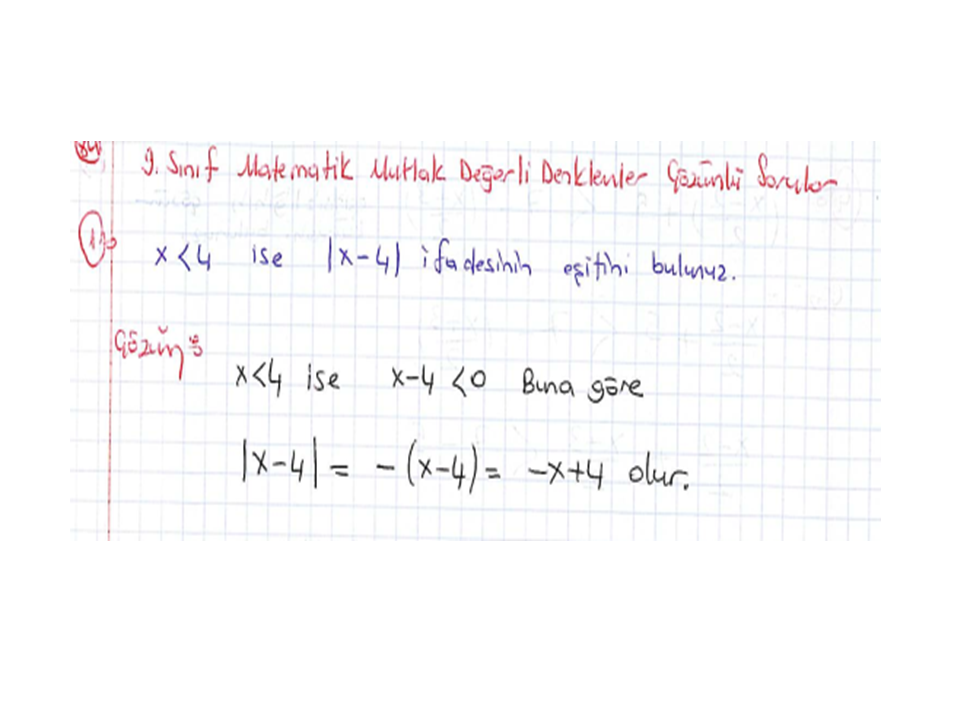 9. Sınıf Matematik Mutlak Değerli Denklemler Çözümlü Sorular
1)
x<4 ise |x-4| ifadesinin eşitini bulunuz.
Çözüm:
x<4 ise x-4 <0 Buna göre
|x-4| = -(x-4) = -x+4 olur.